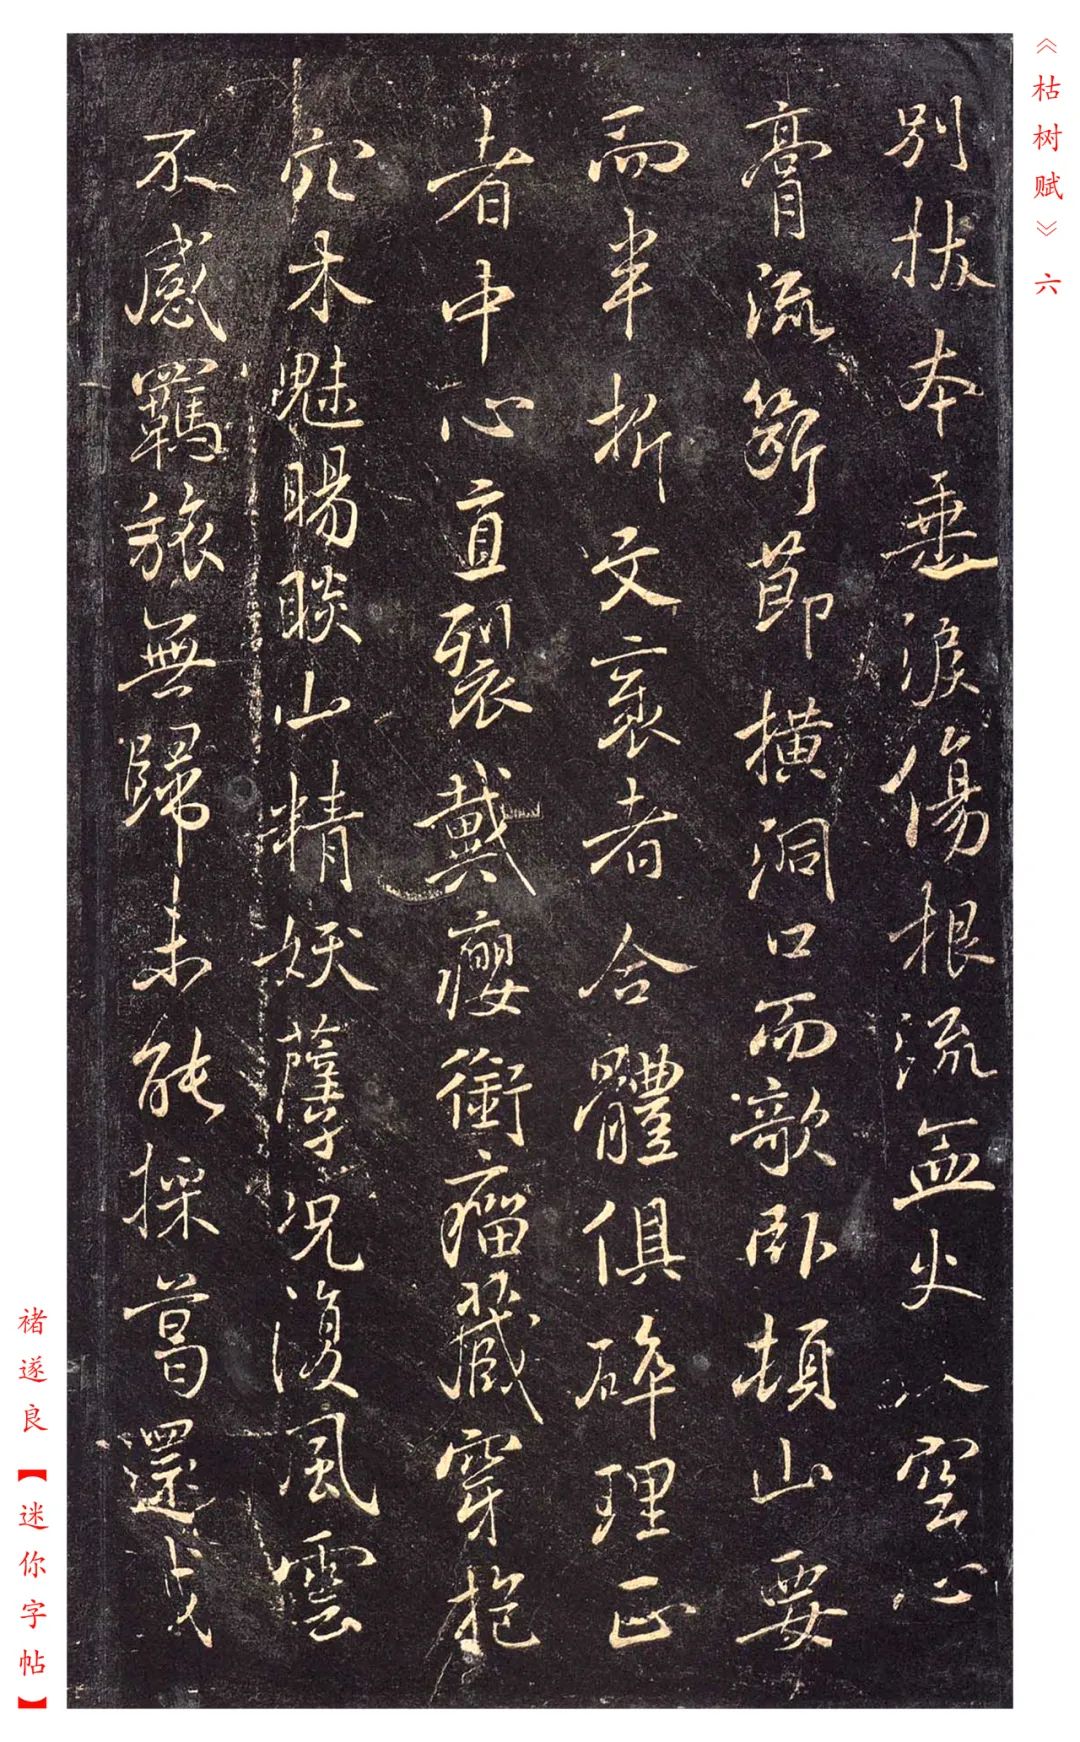 《枯树赋》六
别拔本垂淚傷根流血火入空心
膏流斷節橫洞口而欹卧頓山要
而半折文衺者合體俱碎理正
者中心直裂戴癭銜瘤藏穿抱
穴木魅睗睒山精妖孽況復風雲
不感羈旅無歸未能採葛還成
褚遂良【迷你字帖】